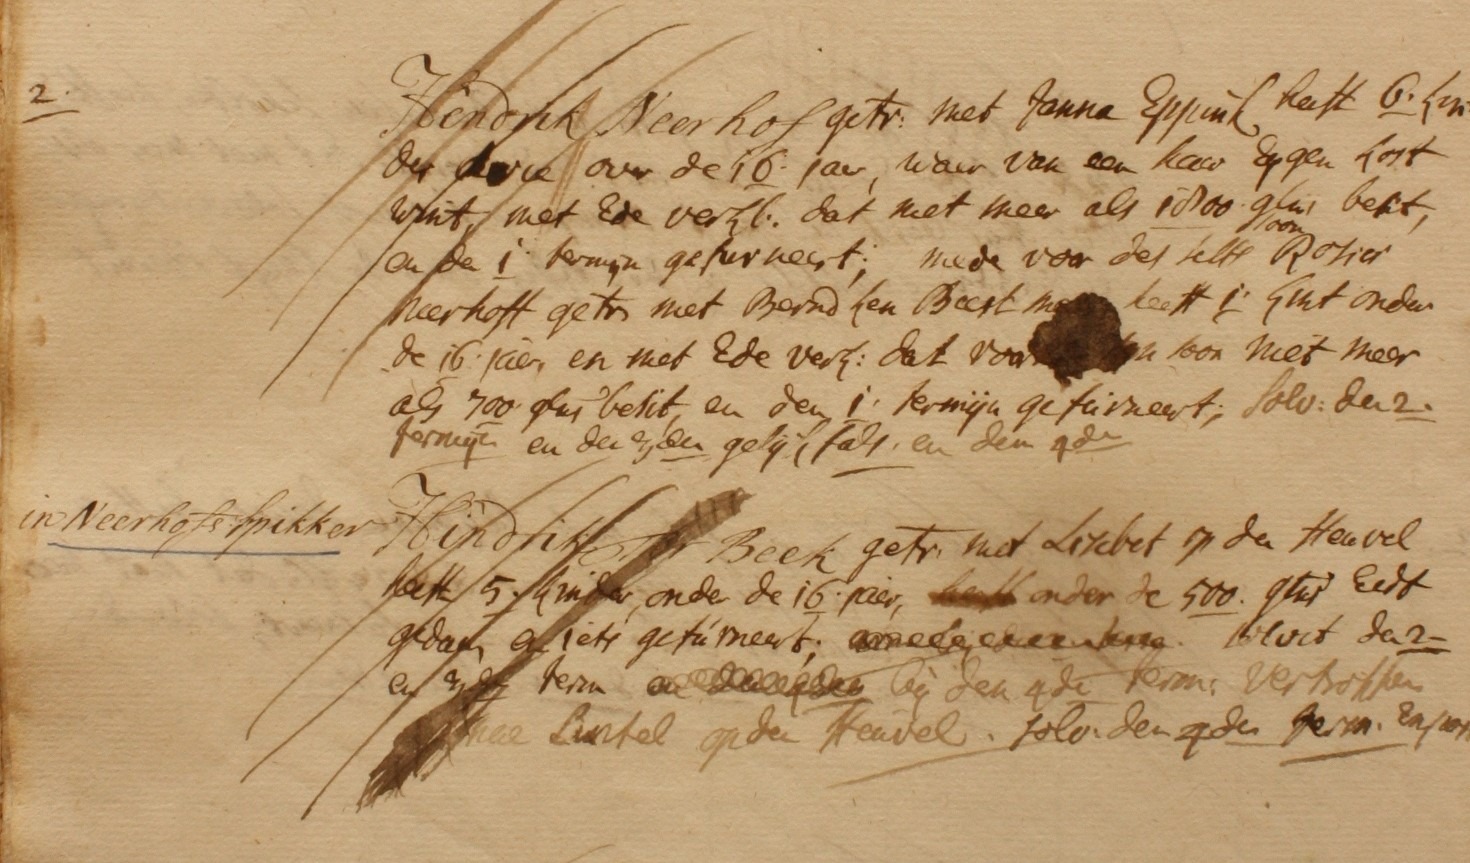 2.
Hendrik Neerhof getr: met Janna Eppink heeft 6. kin
der over de 16. jaer, waer van een haer Eygen kost
wint, met Ede verkl. dat niet meer als 1800. glns besit,
en den 1 termijn gefurneert; mede voor des selfs soon Rosier
Neerhoff getr met Berndken Beest heeft 1. kint onder
de 16. jaer, en met Ede verk: dat soon niet meer
als 700 glns besit, en den 1. termijn gefurneert, solv: den 2.
termijn en den 3den gelijkfals. en den 4den
in Neerhofs spikker
Hindrik ter Beek getr. met Lisebet op den Heuvel
heeft 5. kinder, onder de 16. jaer, onder de 500. glns Eedt
gedaen en iets gefurneert; solvit den 2
en 3de term bij den 4de term: vertroffen
nae Lintel op den Heuvel. solv. den 4den term.